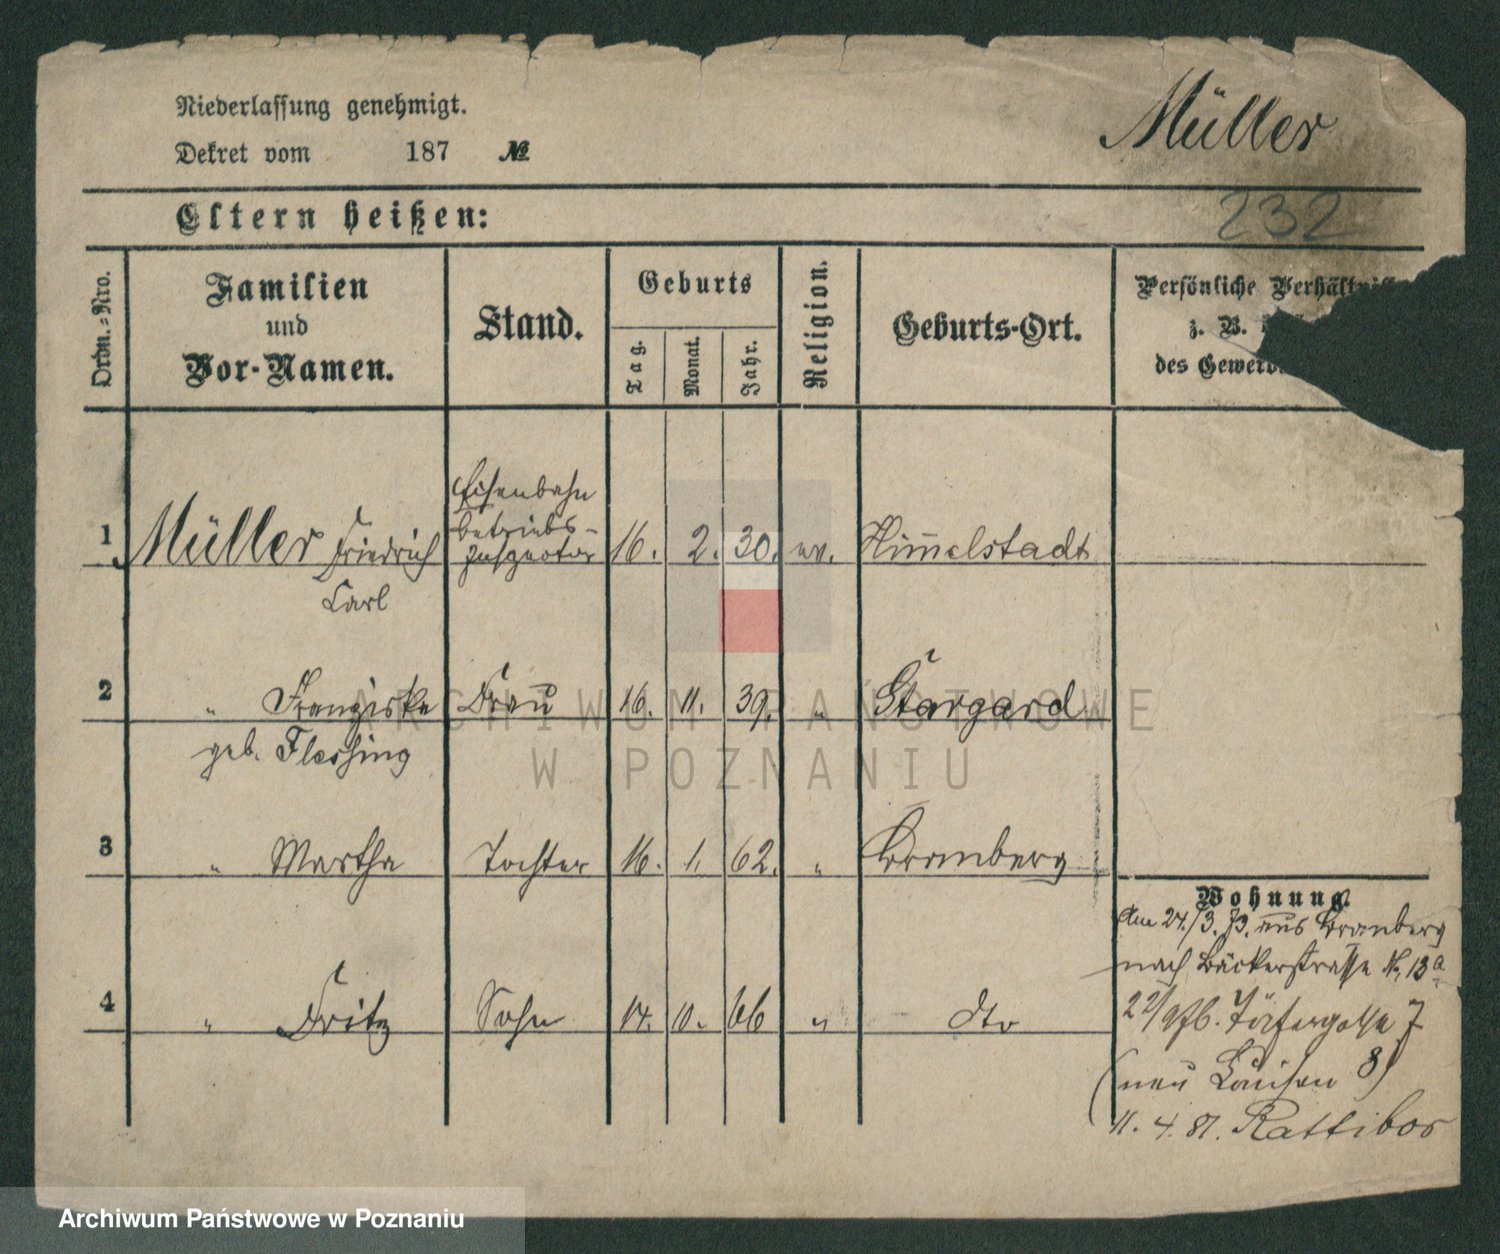 Niederlassung genehmigt.
Müller
Dekret vom 187 №
232
Eltern heißen:
Ordn.-Nro.
Familien
und
Vor-Namen.
Stand.
Geburts
Tag.
Monat.
Jahr.
Religion.
Geburts-Ort.
Persönliche
z. B.
des
1 Müller Friedrich
Carl
Eisenbahn
betriebs-
Inspector
16. 2. 30. ev. Himmelstadt
2 " Franziska Frau 16. 11. 39. " Stargard
geb. Flessing
3 " Martha Tochter 16. 1. 62. " Bromberg
4 " Fritz Sohn 14. 10. 66 " dto
Wohnung.
24./3. 73. aus Bromberg
nach Bäckerstrasse № 13a
22/9 76. 7
(neu Louisen 8)
11. 4. 81. Rattibor
ARCHIWUM PAŃSTWOWE
W POZNANIU
Archiwum Państwowe w Poznaniu